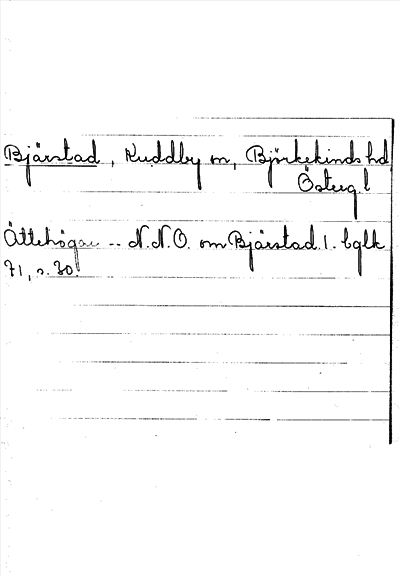 Bjärstad, Kuddby sn, Björkekinds hd
Österg.l
Ättehögar -- N.N.O. om Bjärstad. 1. bglk
71, s. 30.